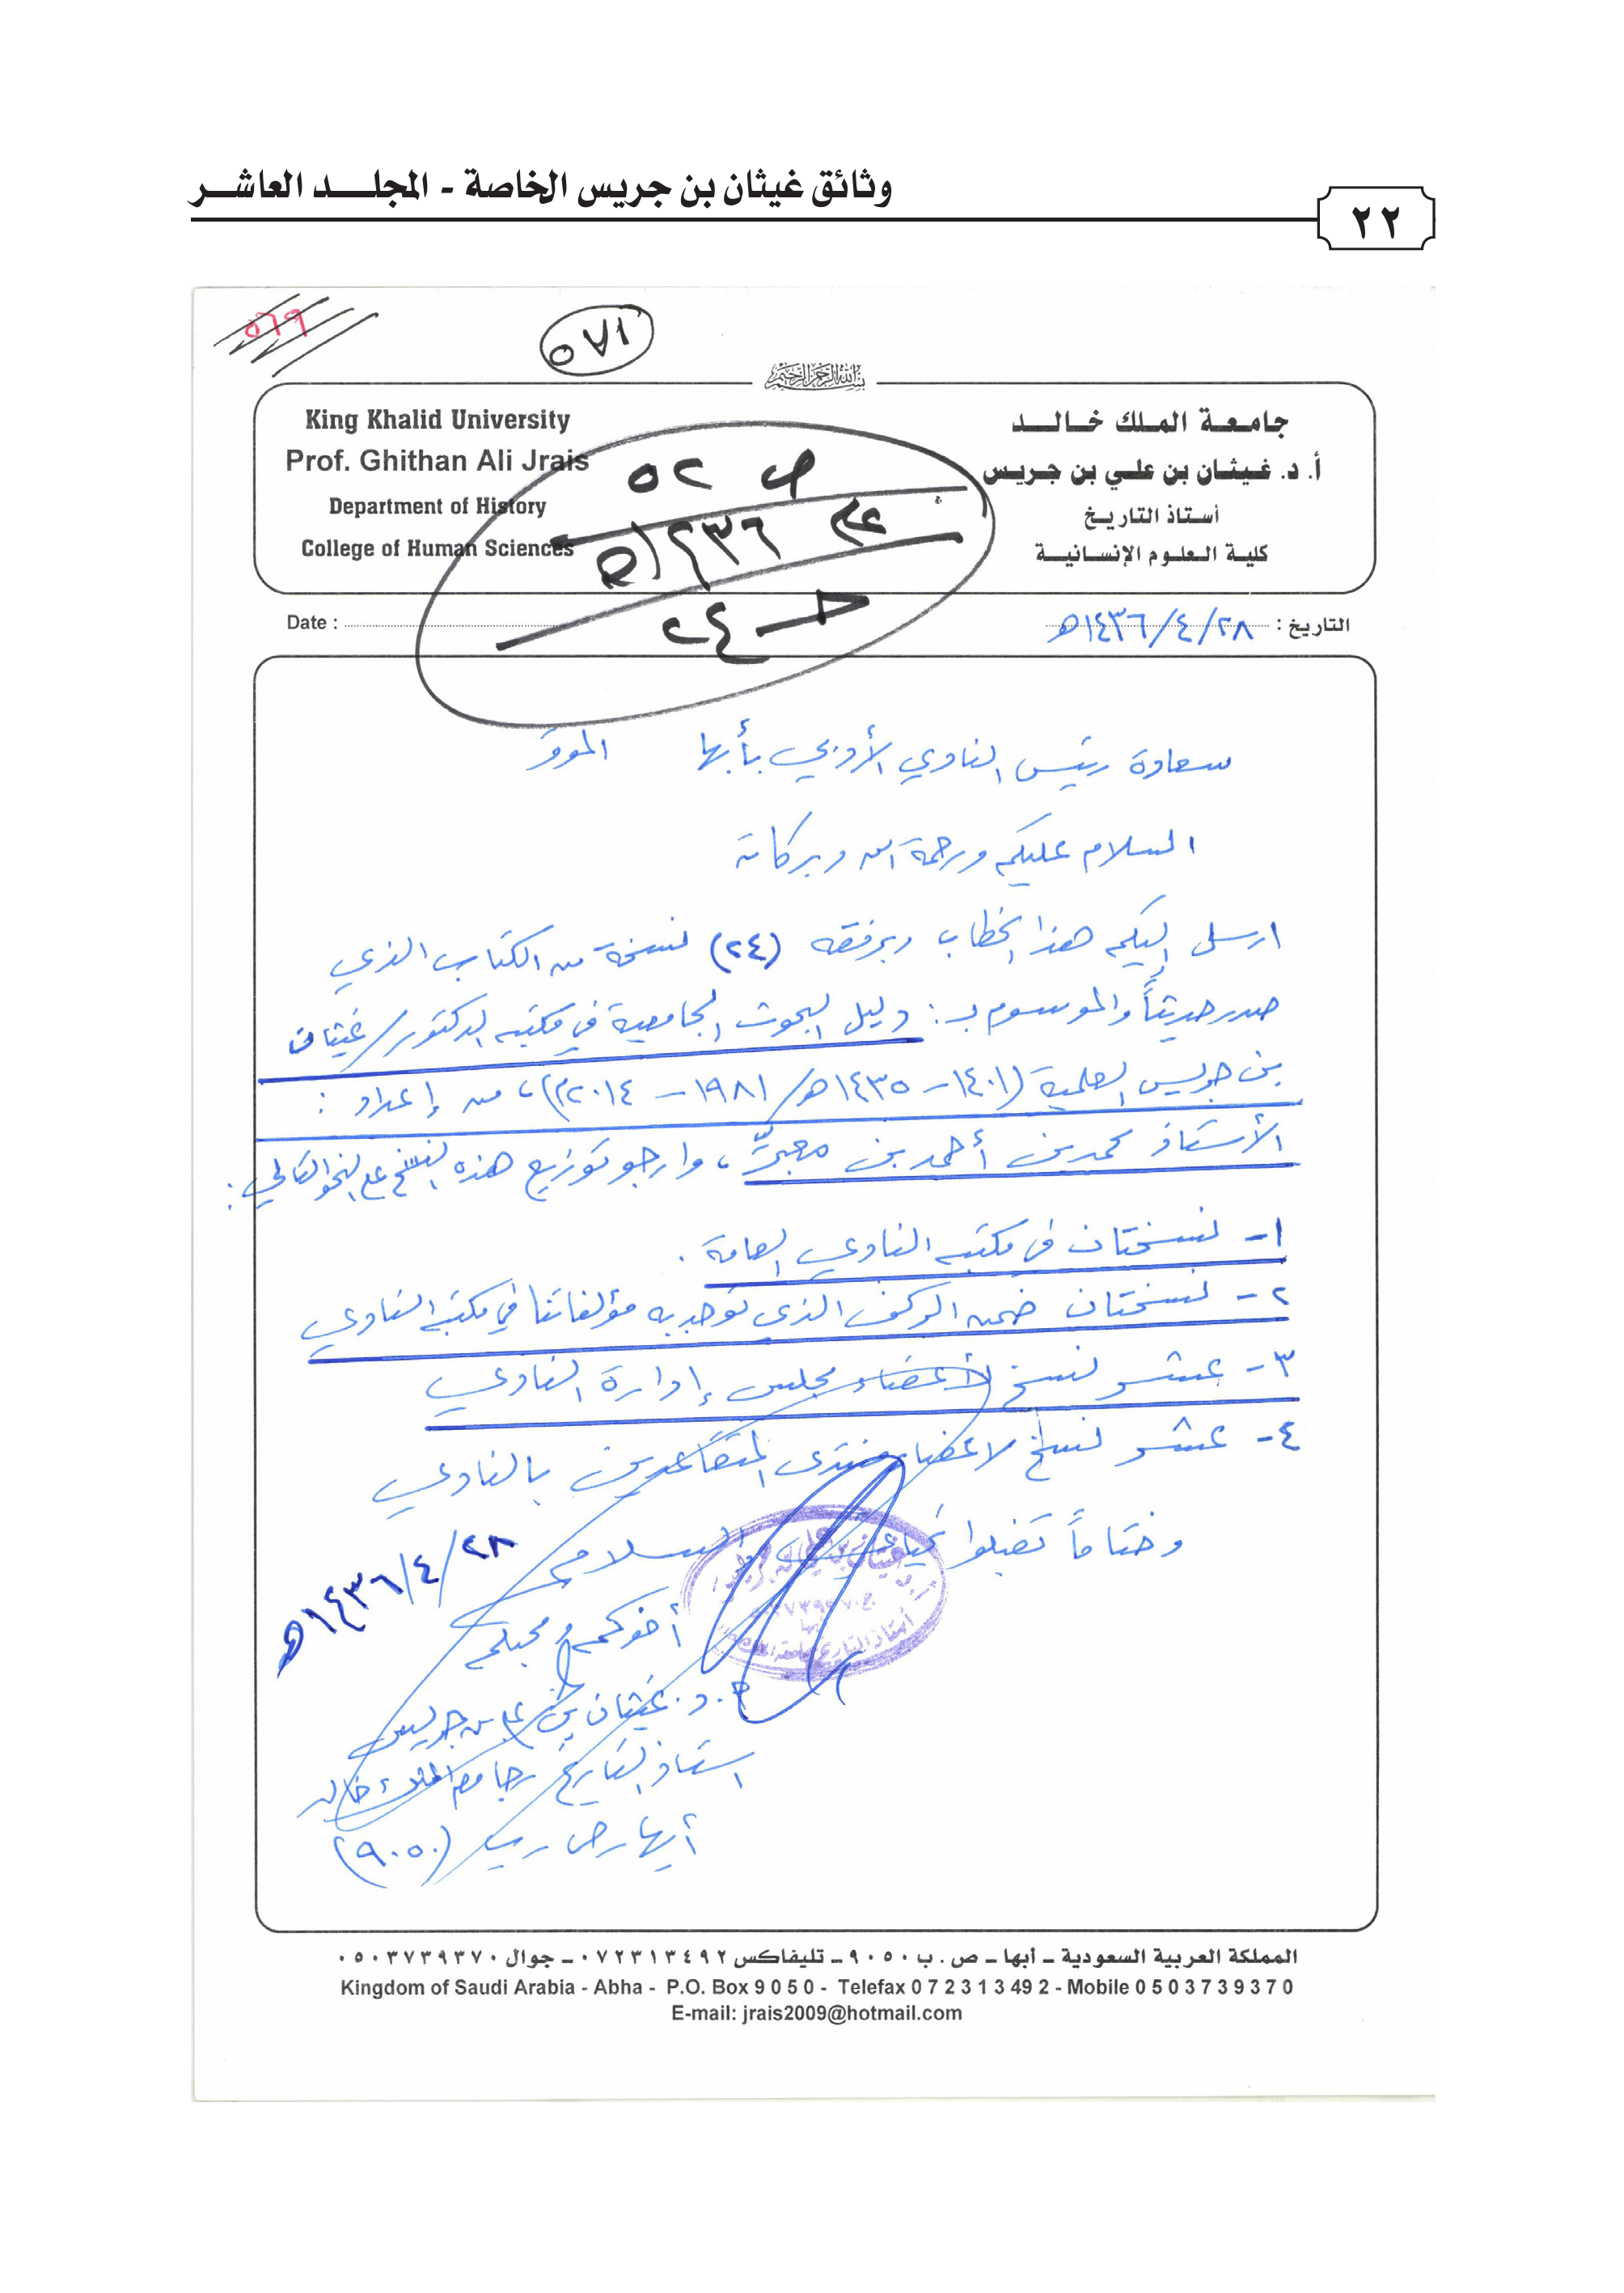 وثائق غيثان بن جريس الخاصة - المجلد العاشر
٢٢
٥٦٩
٥٧١
بسم الله الرحمن الرحيم
King Khalid University
Prof. Ghithan Ali Jrais
Department of History
College of Human Sciences
جامعة الملك خالد
أ. د. غيثان بن علي بن جريس
أستاذ التاريخ
كلية العلوم الإنسانية
ص ٥٢
٢٤
Date :
التاريخ : ١٤٣٦/٤/٢٨هـ
سعادة رئيس النادي الأدبي بأبها الموقر
السلام عليكم ورحمة الله وبركاته
ارسل إليكم هذا الخطاب وبرفقه (٢٤) نسخة من الكتاب الذي
صدر حديثاً والموسوم بـ : دليل البحوث الجامعية في مكتبة الدكتور/ غيثان
بن جريس العلمية (١٤٠١ - ١٤٣٥هـ/ ١٩٨١ - ٢٠١٤م) ، من إعداد :
الأستاذ محمد بن أحمد بن معبر ، وارجو توزيع هذه النسخ على النحو التالي :
١- نسختان في مكتبة النادي العامة .
٢- نسختان ضمن الركن الذي توجد به مؤلفاتنا في مكتبة النادي
٣- عشر نسخ لأعضاء مجلس إدارة النادي
٤- عشر نسخ لاعضاء منتدى المتقاعدين بالنادي
وختاماً تقبلوا تحياتي والسلام
١٤٣٦/٤/٢٨هـ
أخوكم ومحبكم
أ . د . غيثان بن علي بن جريس
استاذ التاريخ بجامعة الملك خالد
أبها ص ب (٩٠٥٠)
المملكة العربية السعودية – أبها – ص . ب ٩٠٥٠ – تليفاكس ٠٧٢٣١٣٤٩٢ – جوال ٠٥٠٣٧٣٩٣٧٠
Kingdom of Saudi Arabia - Abha - P.O. Box 9 0 5 0 - Telefax 0 7 2 3 1 3 49 2 - Mobile 0 5 0 3 7 3 9 3 7 0
E-mail: jrais2009@hotmail.com